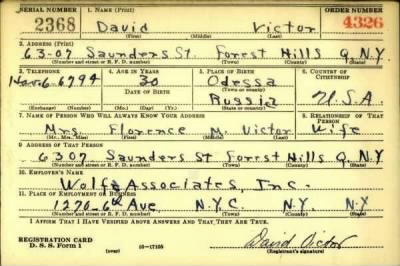 SERIAL NUMBER 1. NAME (Print) ORDER NUMBER
2368 David Victor 4326
(First) (Middle) (Last)
2. ADDRESS (Print)
63-07 Saunders St. Forest Hills Q. N.Y.
(Number and street or R. F. D. number) (Town) (County) (State)
3. TELEPHONE 4. AGE IN YEARS 5. PLACE OF BIRTH 6. COUNTRY OF CITIZENSHIP
Hav. 6-6794 30 Odessa
DATE OF BIRTH (Town or county)
Russia U.S.A.
(Exchange) (Number) (Mo.) (Day) (Yr.) (State or country)
7. NAME OF PERSON WHO WILL ALWAYS KNOW YOUR ADDRESS 8. RELATIONSHIP OF THAT PERSON
Mrs. Florence M. Victor Wife
(Mr., Mrs., Miss) (First) (Middle) (Last)
9. ADDRESS OF THAT PERSON
63-07 Saunders St Forest Hills Q. N.Y.
(Number and street or R. F. D. number) (Town) (County) (State)
10. EMPLOYER'S NAME
Wolf Associates, Inc.
11. PLACE OF EMPLOYMENT OR BUSINESS
1270-6th Ave N.Y.C. N.Y. N.Y
(Number and street or R. F. D. number) (Town) (County) (State)
I AFFIRM THAT I HAVE VERIFIED ABOVE ANSWERS AND THAT THEY ARE TRUE.
REGISTRATION CARD
D. S. S. Form 1 (over) 16-17105 David Victor
(Registrant's signature)